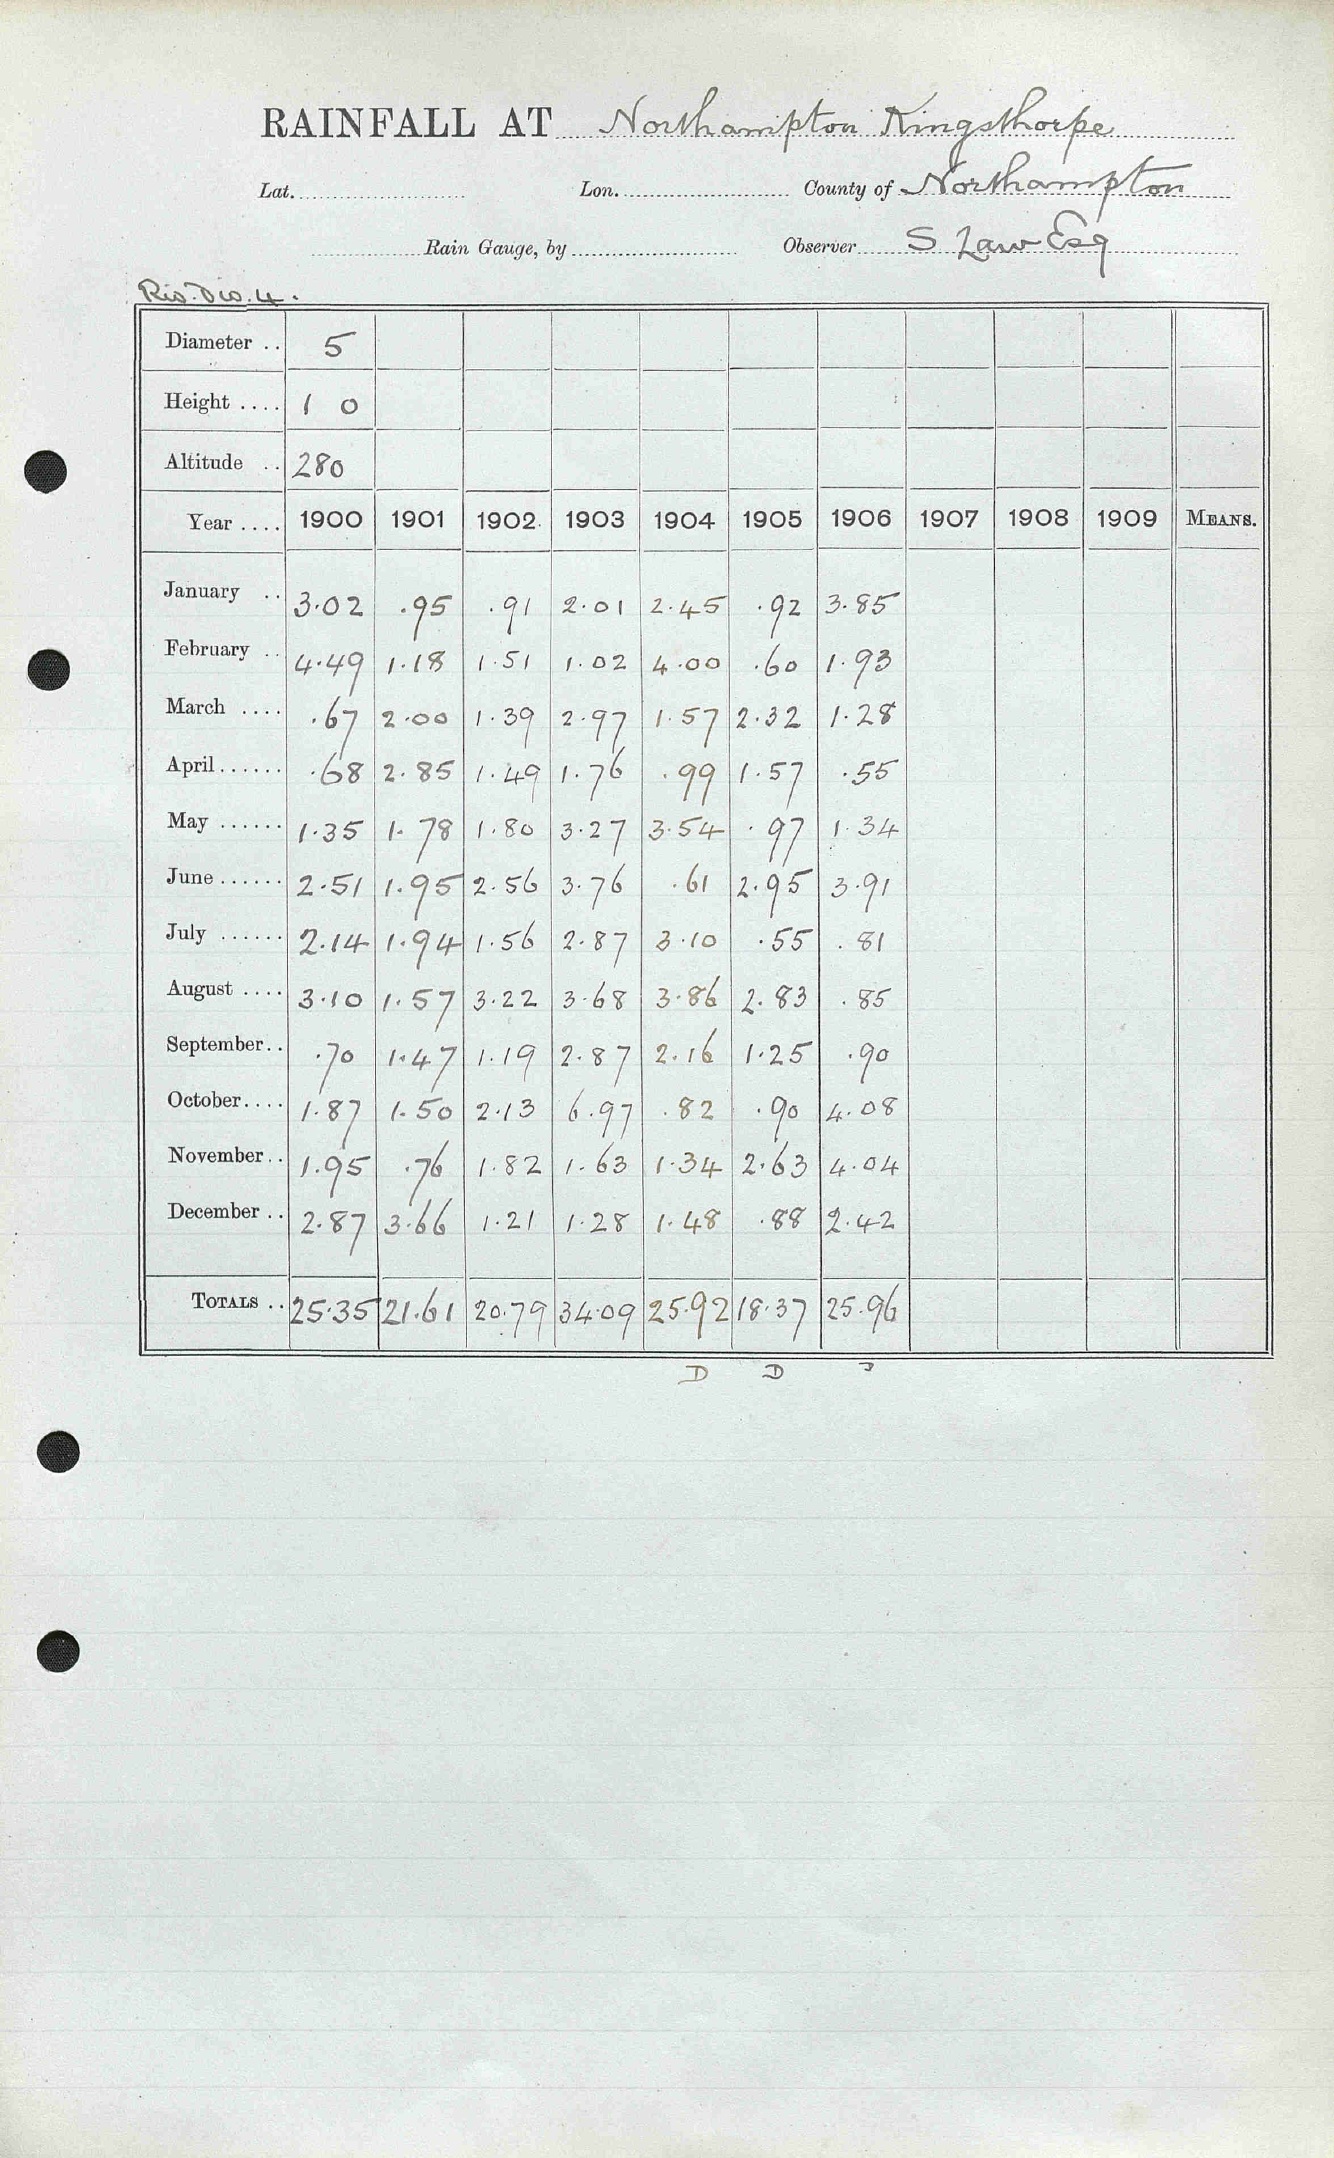 RAINFALL AT Northampton Kingsthorpe
Lat. Lon. County of Northampton
Rain Gauge, by Observer S Law Esq
Riv. Div. 4.
Diameter .. 5
Height .... 1 0
Altitude .. 280
Year .... 1900 1901 1902 1903 1904 1905 1906 1907 1908 1909 MEANS.
January .. 3.02 .95 .91 2.01 2.45 .92 3.85
February .. 4.49 1.18 1.51 1.02 4.00 .60 1.93
March .... .67 2.00 1.39 2.97 1.57 2.32 1.28
April ...... .68 2.85 1.49 1.76 .99 1.57 .55
May ...... 1.35 1.78 1.80 3.27 3.54 .97 1.34
June ...... 2.51 1.95 2.56 3.76 .61 2.95 3.91
July ...... 2.14 1.94 1.56 2.87 3.10 .55 .81
August .... 3.10 1.57 3.22 3.68 3.86 2.83 .85
September .. .70 1.47 1.19 2.87 2.16 1.25 .90
October .... 1.87 1.50 2.13 6.97 .82 .90 4.08
November .. 1.95 .76 1.82 1.63 1.34 2.63 4.04
December .. 2.87 3.66 1.21 1.28 1.48 .88 2.42
TOTALS .. 25.35 21.61 20.79 34.09 25.92 18.37 25.96
D D